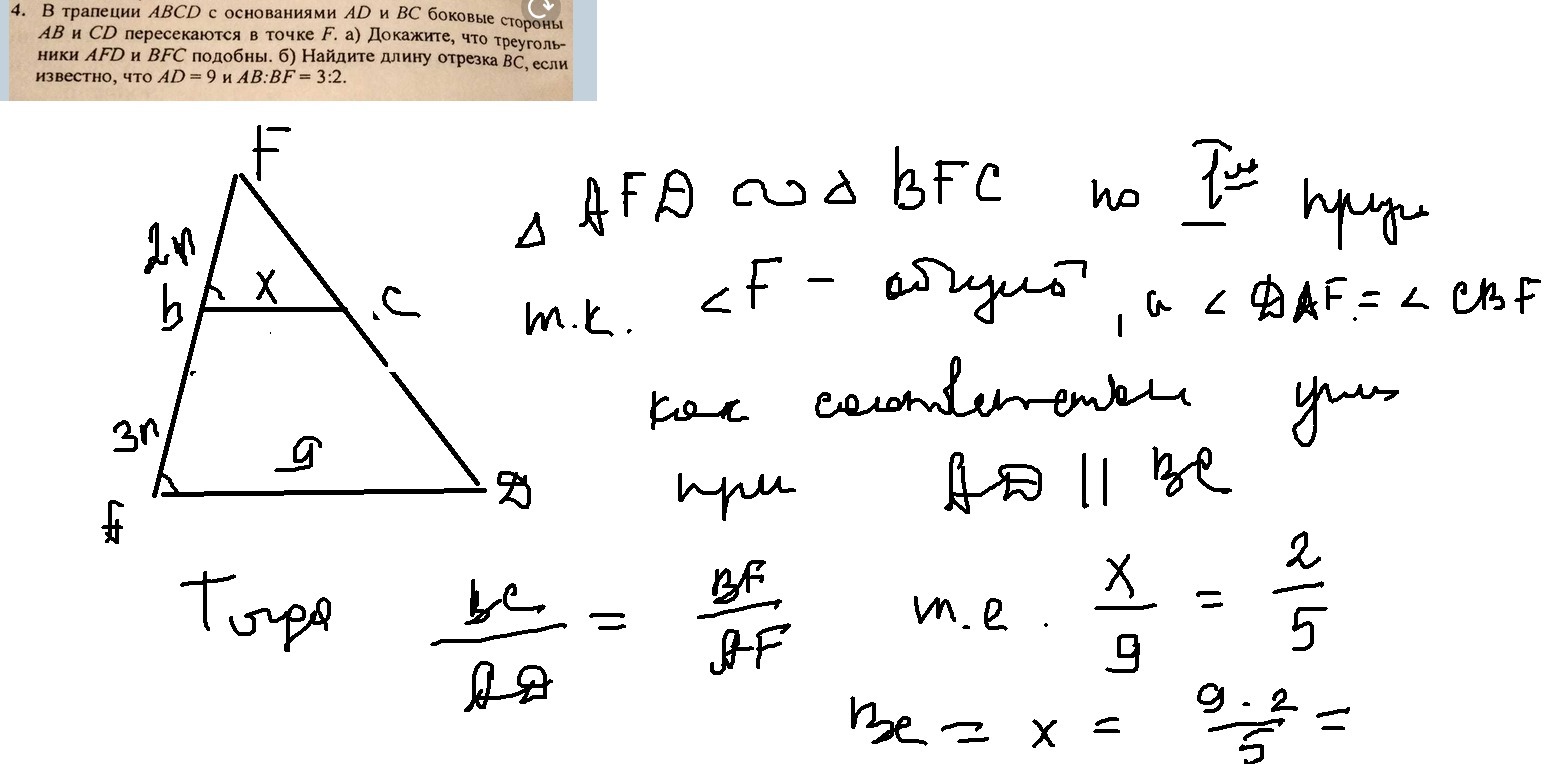 4. В трапеции ABCD с основаниями AD и BC боковые стороны
AB и CD пересекаются в точке F. а) Докажите, что треуголь-
ники AFD и BFC подобны. б) Найдите длину отрезка BC, если
известно, что AD = 9 и AB:BF = 3:2.
F
2n
x
b
.C
3n
9
A
D
Δ AFD ∾ Δ BFC по I
т.к. <F - общий, а < DAF = < CBF
как соответственные углы
при AD || BC
Тогда BC/AD = BF/AF т.е. x/9 = 2/5
BC = x = 9·2/5 =